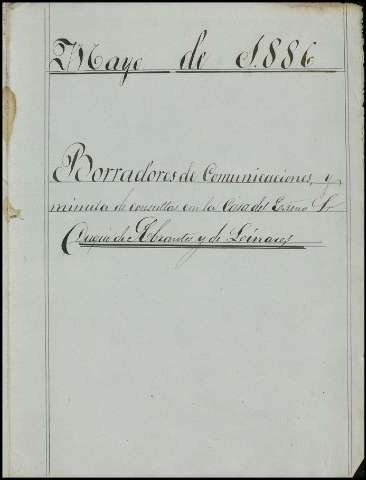 Mayo de 1.886
Borradores de Comunicaciones, y
minuta de consultas en la Casa del Excmo Sr
Duque de Abrantes y de Linares